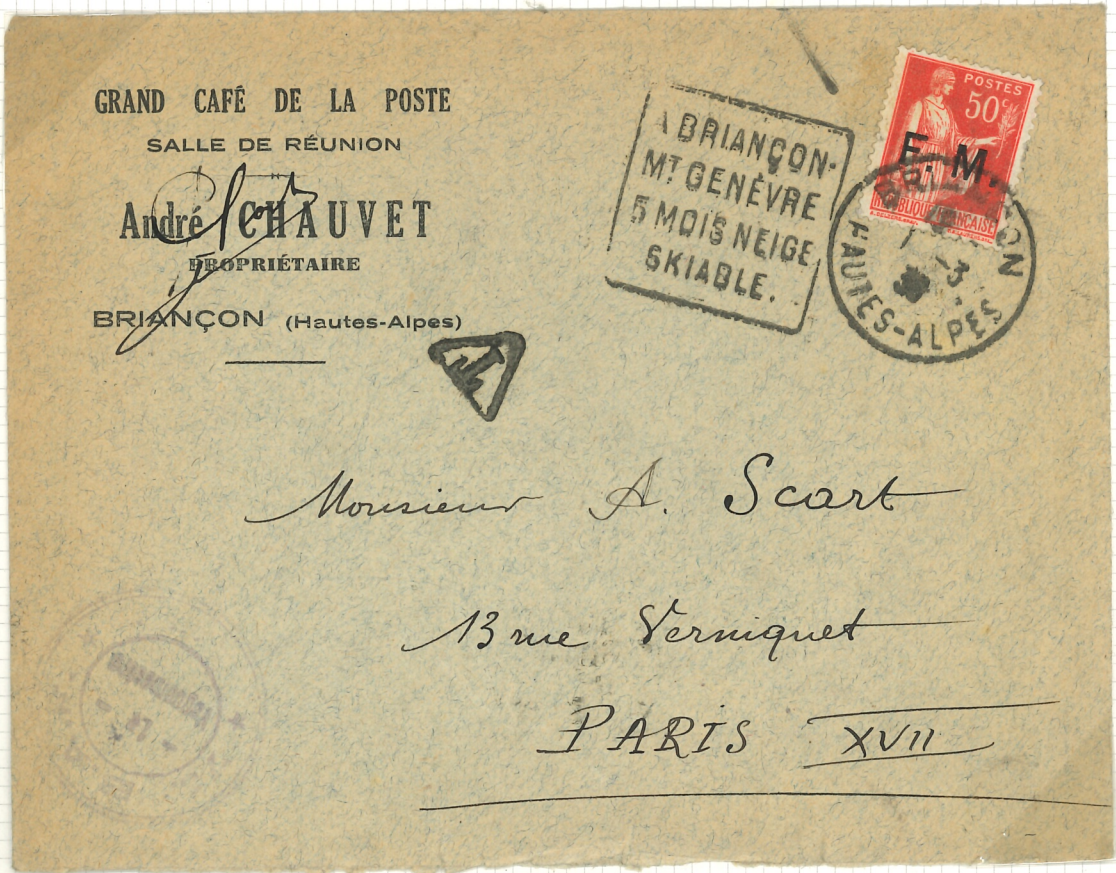 GRAND CAFÉ DE LA POSTE
SALLE DE RÉUNION
André CHAUVET
PROPRIÉTAIRE
BRIANÇON (Hautes-Alpes)
A BRIANÇON-
MT GENÈVRE
5 MOIS NEIGE
SKIABLE.
POSTES
50c
F. M.
RÉPUBLIQUE FRANÇAISE
BRIANÇON
-3
HAUTES-ALPES
T
Monsieur A. Scart
13 rue Verniquet
PARIS XVII